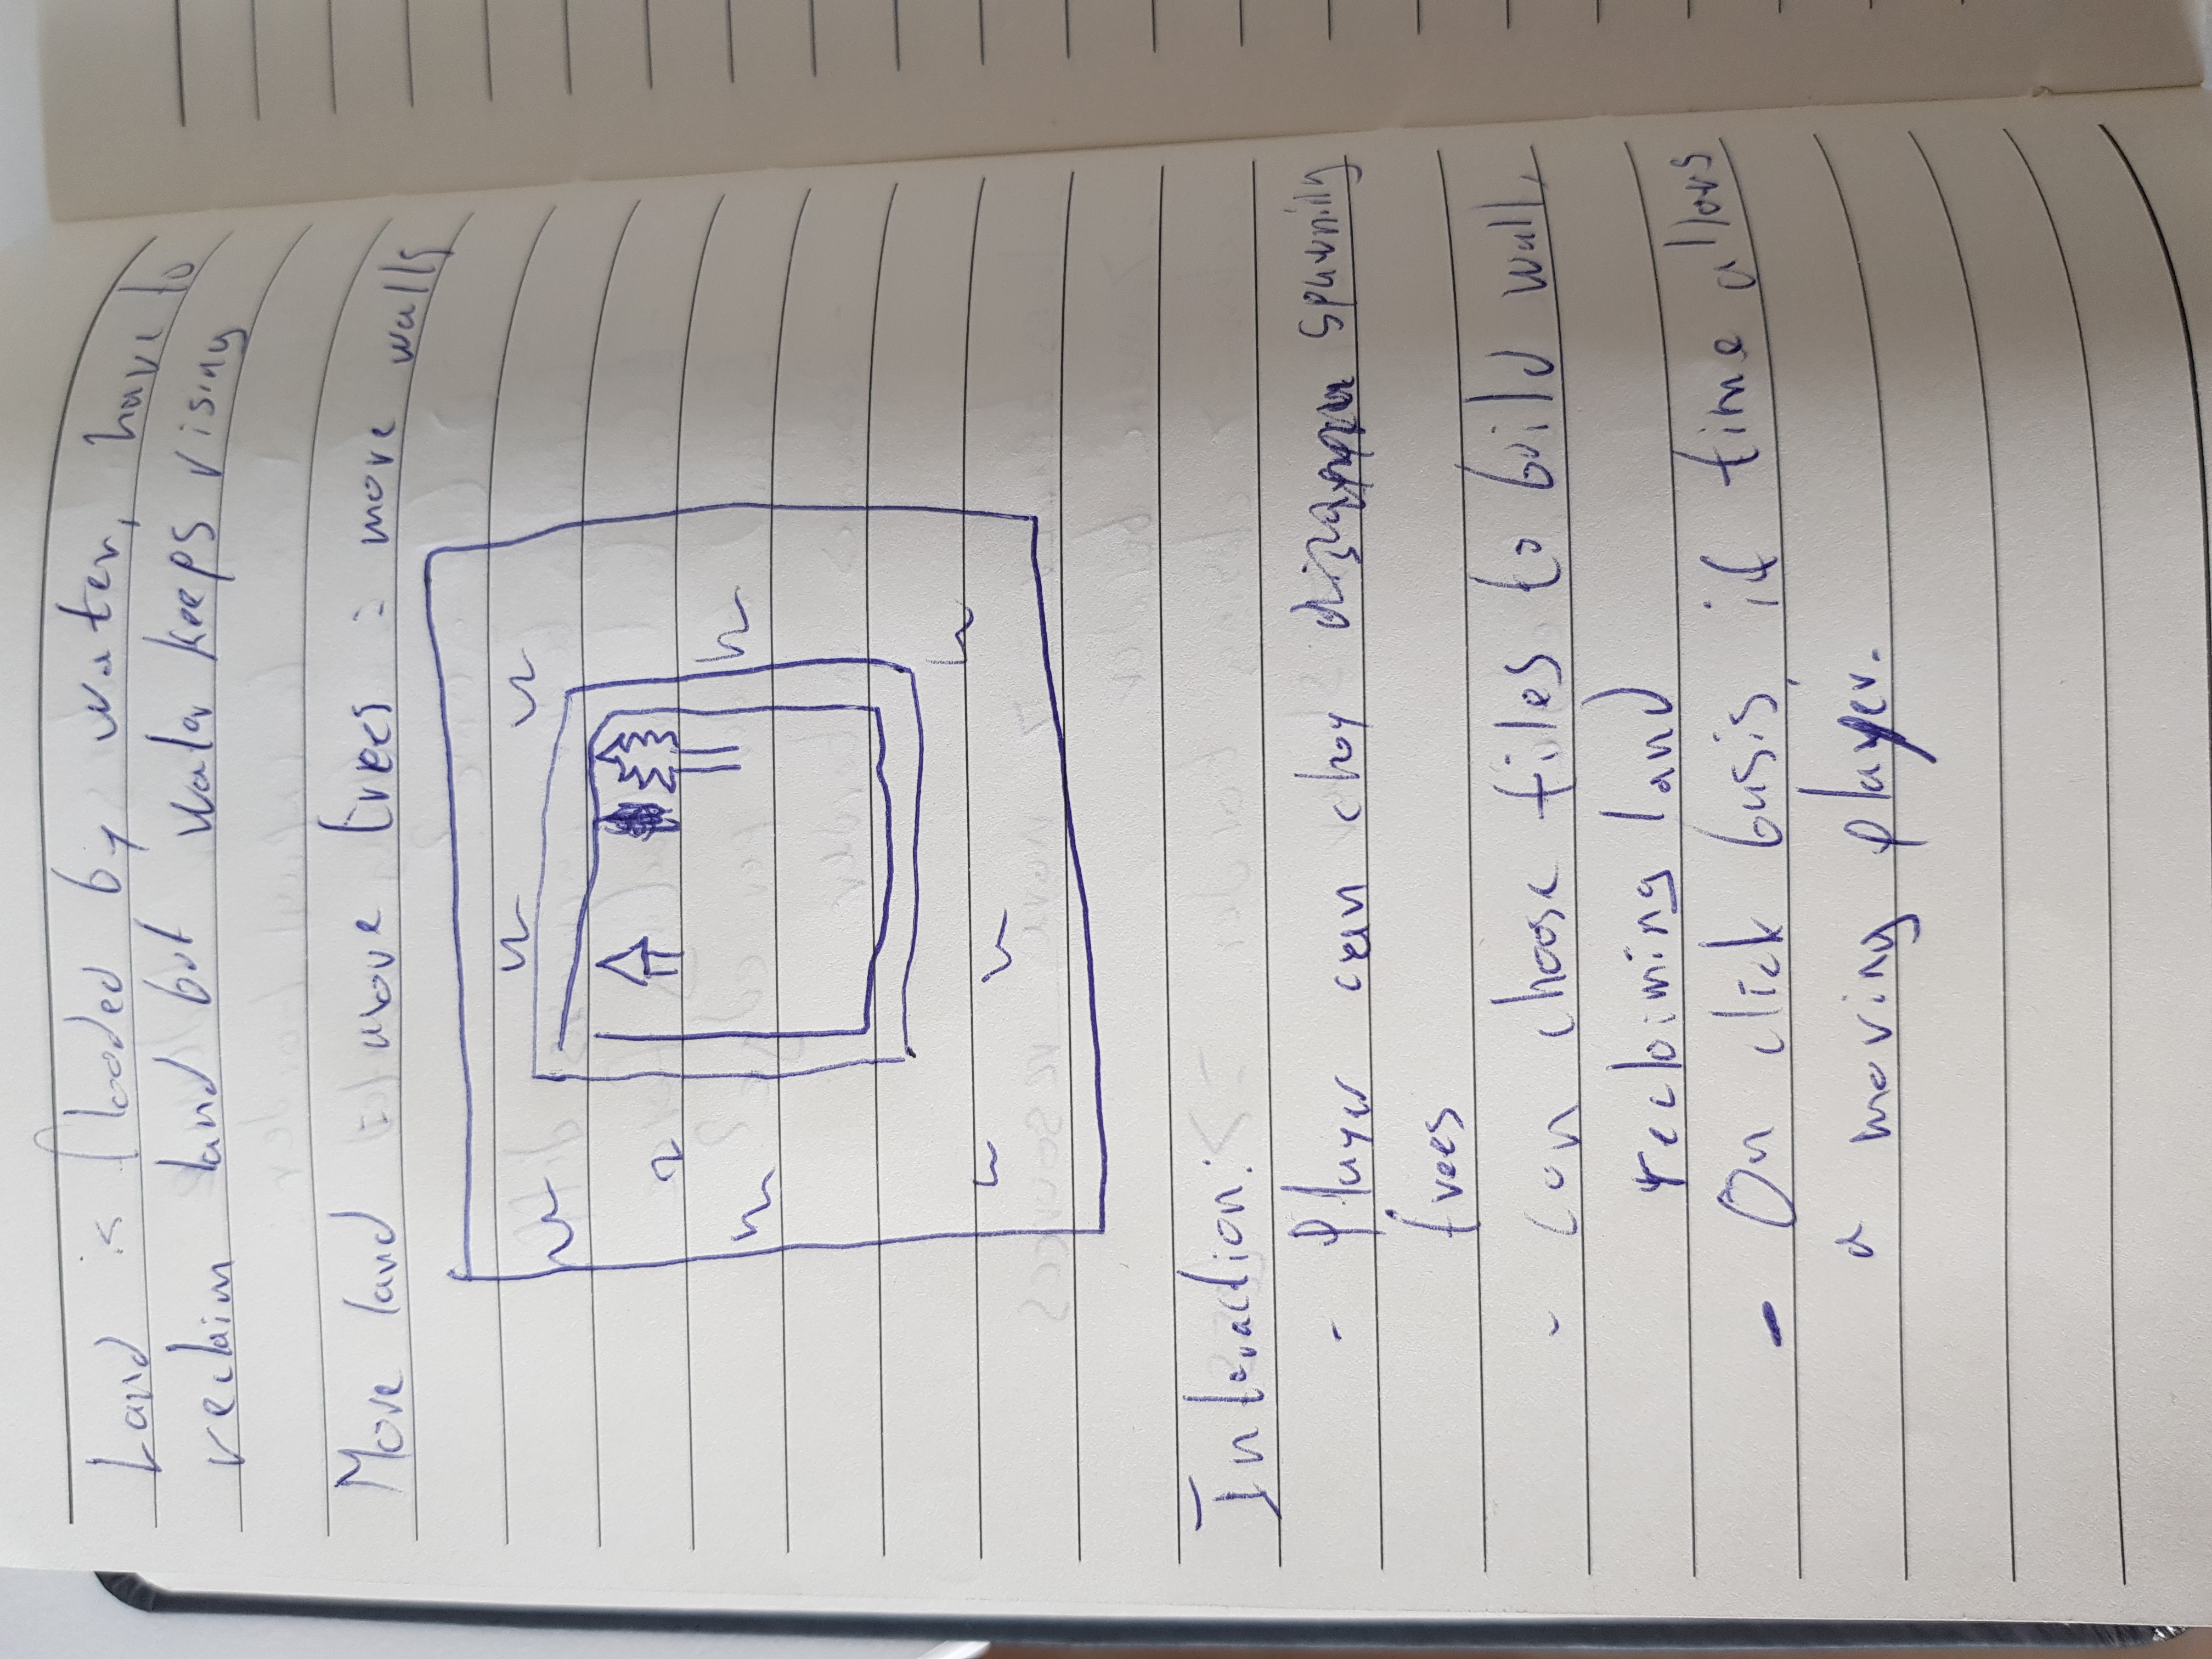 Land is flooded by water, have to
reclaim land but water keeps rising
More land = more trees = more walls
Interaction:
- Player can chop spawning
trees
- can choose tiles to build wall,
reclaiming land
- On click basis, if time allows
a moving player.